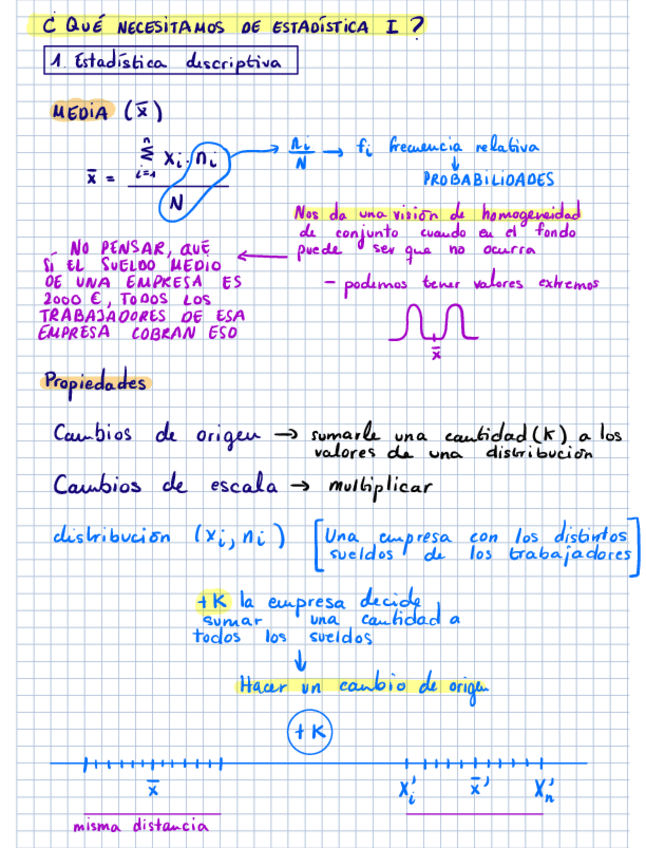 ¿ QUÉ NECESITAMOS DE ESTADÍSTICA I ?
1. Estadística descriptiva
MEDIA (x̄)
x̄ = Σ xi · ni / N
n
i=1
ni/N → fi frecuencia relativa
↓
PROBABILIDADES
Nos da una visión de homogeneidad
de conjunto cuando en el fondo
puede ser que no ocurra
- podemos tener valores extremos
x̄
NO PENSAR, QUE
SI EL SUELDO MEDIO
DE UNA EMPRESA ES
2000 €, TODOS LOS
TRABAJADORES DE ESA
EMPRESA COBRAN ESO
Propiedades
Cambios de origen → sumarle una cantidad (K) a los
valores de una distribución
Cambios de escala → multiplicar
distribución (xi, ni) [Una empresa con los distintos
sueldos de los trabajadores]
+K la empresa decide
sumar una cantidad a
todos los sueldos
↓
Hacer un cambio de origen
+K
x̄ Xi' x̄' Xn'
misma distancia